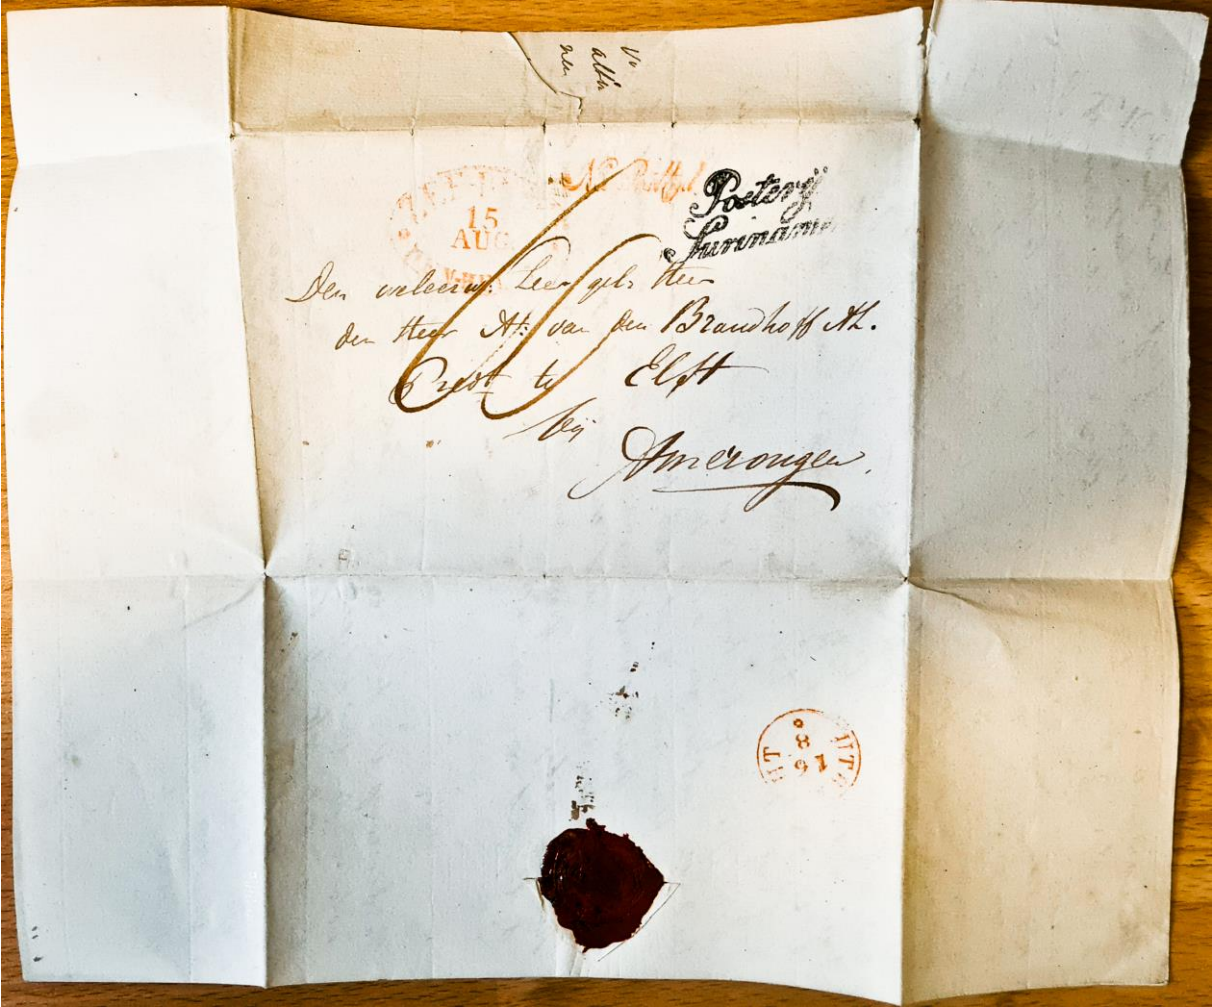 15
AUG
Postery
Suriname
Den weleerw: Heer
den Heer At: van den Brandhoff Az.
Pred.t te Elst
bij
Amerongen.
UT HT
8
16